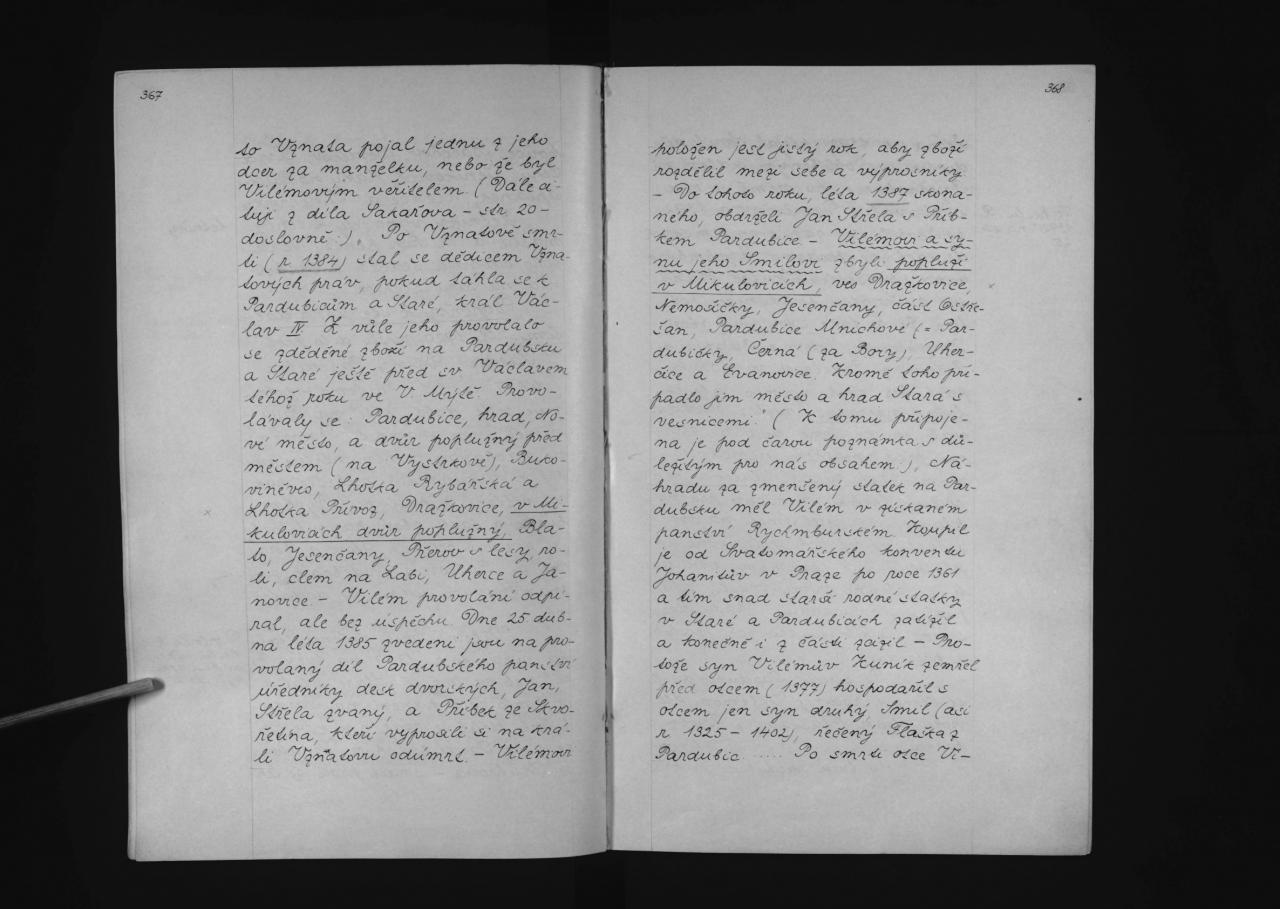 367
to Vznata pojal jednu z jeho
dcer za manželku, nebo že byl
Vilémovým věřitelem. (Dále ci-
tuji z díla Sakařova - str. 20 -
doslovně:). Po Vznatově smr-
ti (r. 1384) stal se dědicem Vzna-
tových práv, pokud táhla se k
Pardubicům a Staré, král Vác-
lav IV. Z vůle jeho provolalo
se zděděné zboží na Pardubsku
a Staré ještě před sv. Václavem
téhož roku ve V. Mýtě. Provo-
lávaly se: Pardubice, hrad, No-
vé město, a dvůr poplužný před
městem (na Vystrkově), Buko-
viněves, Lhotka Rybářská a
Lhotka Přívoz, Dražkovice, v Mi-
kulovicích dvůr poplužný, Bla-
to, Jesenčany, Přerov s lesy, ro-
lí, clem na Labi, Uherce a Ja-
novice. - Vilém provolání odpí-
ral, ale bez úspěchu. Dne 25. dub-
na léta 1385 zvedeni jsou na pro-
volaný díl Pardubského panství
úředníky desk dvorských, Jan,
Střela zvaný, a Příbek ze Skvo-
řetína, kteří vyprosili si na krá-
li Vznatovu odúmrt. - Vilémovi
368
položen jest jistý rok, aby zboží
rozdělil mezi sebe a výprosníky.
- Do tohoto roku, léta 1387 skona-
ného, obdrželi Jan Střela s Příb-
kem Pardubice - Vilémovi a sy-
nu jeho Smilovi zbyli popluží
v Mikulovicích, ves Dražkovice,
Nemošičky, Jesenčany, část Ostře-
šan, Pardubice Mnichové (= Par-
dubičky, Černá (za Bory), Uher-
čice a Evanovice. Kromě toho při-
padlo jim město a hrad Stará s
vesnicemi." (K tomu připoje-
na je pod čarou poznámka s dů-
ležitým pro nás obsahem:), Ná-
hradu za zmenšený statek na Par-
dubsku měl Vilém v získaném
panství Rychmburském. Koupil
je od Svatomářského konventu
Johanitův v Praze po roce 1361
a tím snad starší rodné statky
v Staré a Pardubicích zatížil
a konečně i z části zcizil - Pro-
tože syn Vilémův Kuník zemřel
před otcem (1377) hospodařil s
otcem jen syn druhý, Smil (asi
r. 1325 - 1402), řečený Flaška z
Pardubic ..... Po smrti otce Vi-